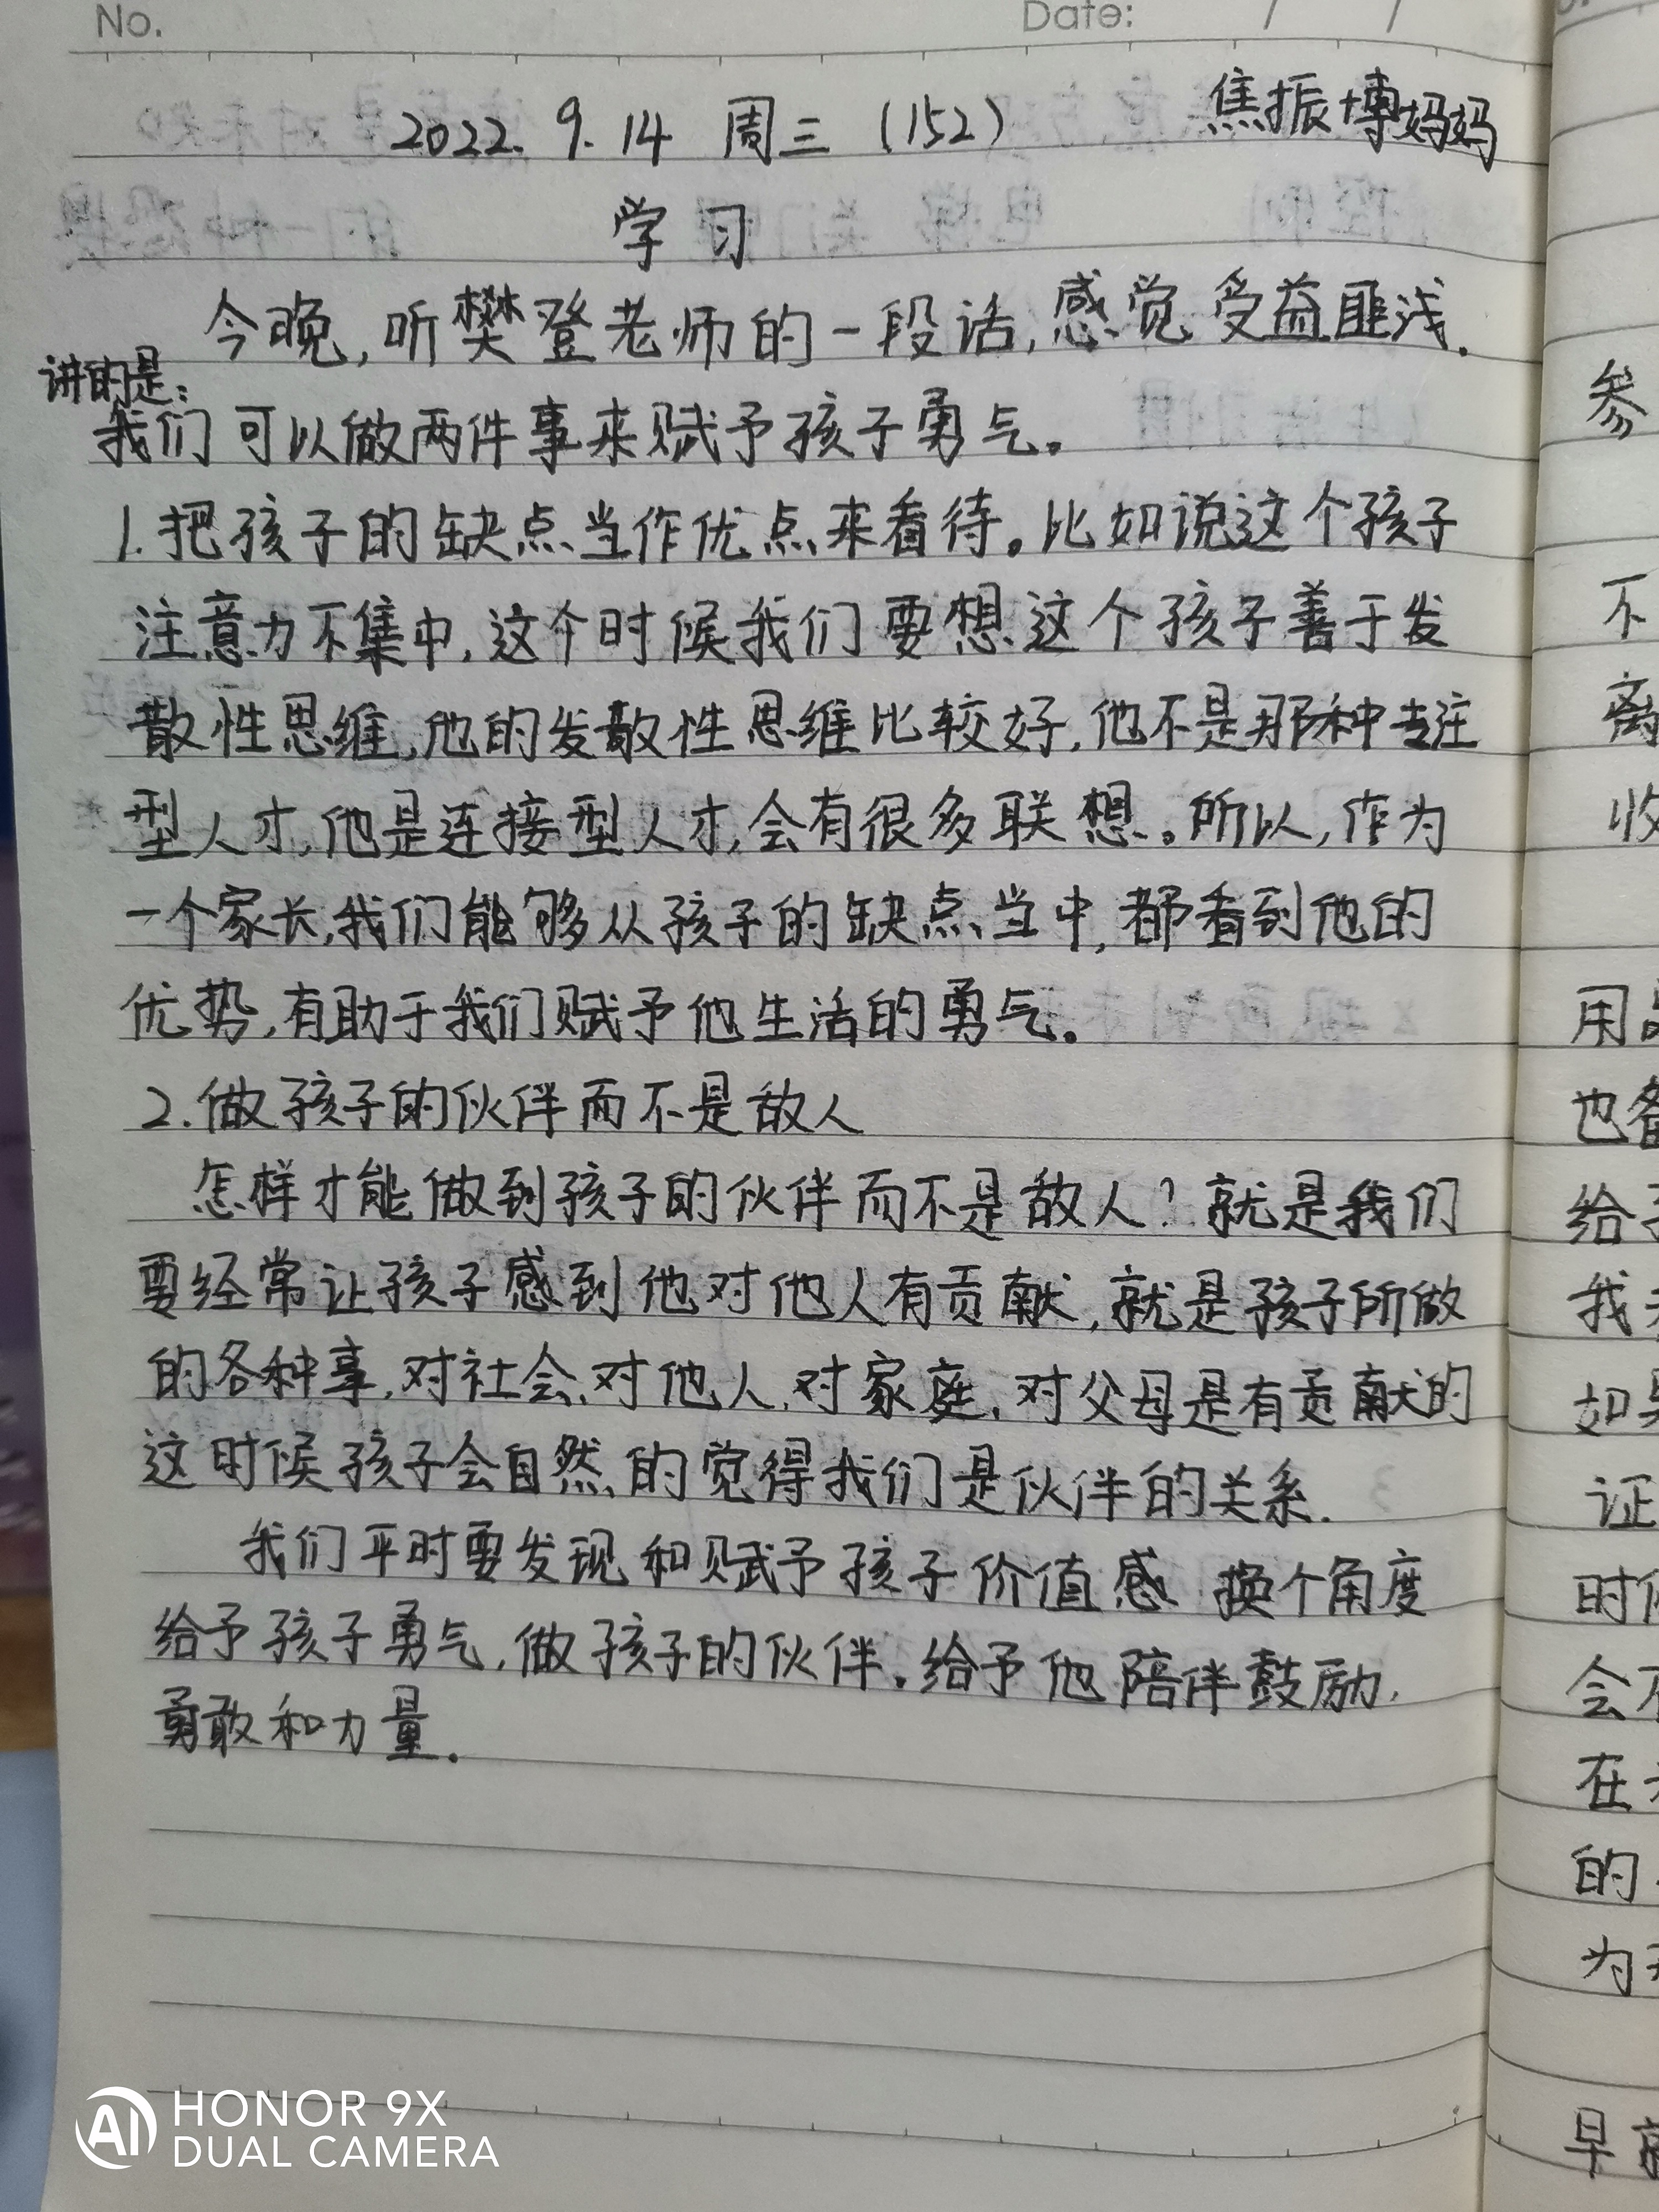 No.
Date: / /
2022. 9. 14 周三 (152) 焦振博妈妈
学习
今晚,听樊登老师的一段话,感觉受益匪浅.
讲的是:
我们可以做两件事来赋予孩子勇气。
1.把孩子的缺点当作优点来看待。比如说这个孩子
注意力不集中,这个时候我们要想这个孩子善于发
散性思维,他的发散性思维比较好,他不是那种专注
型人才,他是连接型人才,会有很多联想。所以,作为
一个家长,我们能够从孩子的缺点当中,都看到他的
优势,有助于我们赋予他生活的勇气。
2.做孩子的伙伴而不是敌人
怎样才能做到孩子的伙伴而不是敌人?就是我们
要经常让孩子感到他对他人有贡献,就是孩子所做
的各种事,对社会、对他人、对家庭、对父母是有贡献的
这时候孩子会自然的觉得我们是伙伴的关系.
我们平时要发现和赋予孩子价值感 换个角度
给予孩子勇气,做孩子的伙伴。给予他陪伴鼓励,
勇敢和力量.
参
不
离
收
用
也
给
我
如
证
时
会
在
的
为
早
AI HONOR 9X
DUAL CAMERA